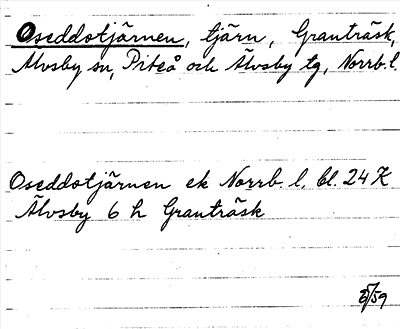 Oseddotjärnen, tjärn, Granträsk,
Älvsby sn, Piteå och Älvsby tg, Norrb. l.
Oseddotjärnen ek Norrb. l. bl. 24 K
Älvsby 6 h Granträsk